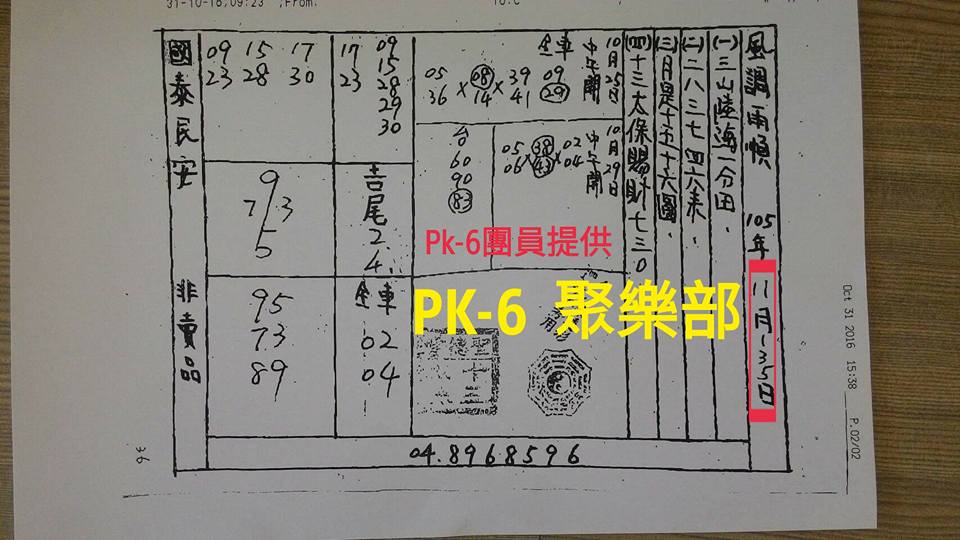 31-10-16;09:23 ;From:
風調雨順 105年 11月1.3.5日
(一)三山陸海一分田.
(二)二八三七四六來.
(三)月是十五十六圓.
(四)十三太保賜財七三0
10月25日
中午開
全車
05 08 39 09
36 × 14 × 41 29
10月29日
中午開
05 38 02
06 × 43 × 04
台
60
90
83
17 09
23 15
28
29
30
09 15 17
23 28 30
吉尾
2
4
9
7 3
5
全車
02
04
95
73
89
國泰民安 非賣品
04.8968596
Pk-6團員提供
PK-6 聚樂部
Oct 31 2016 15:38 P.02/02
36